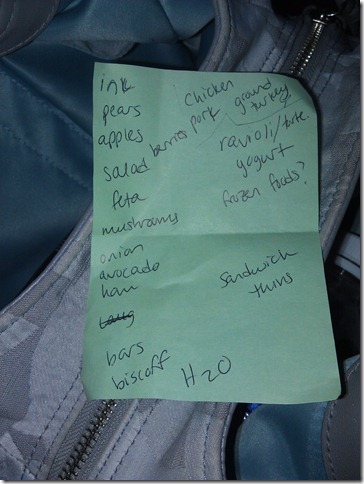 ink
pears
apples
salad
feta
mushrooms
onion
avocado
ham
bars
biscoff
H2O
chicken
ground
turkey
pork
berries
ravioli/torte.
yogurt
frozen foods?
sandwich
thins